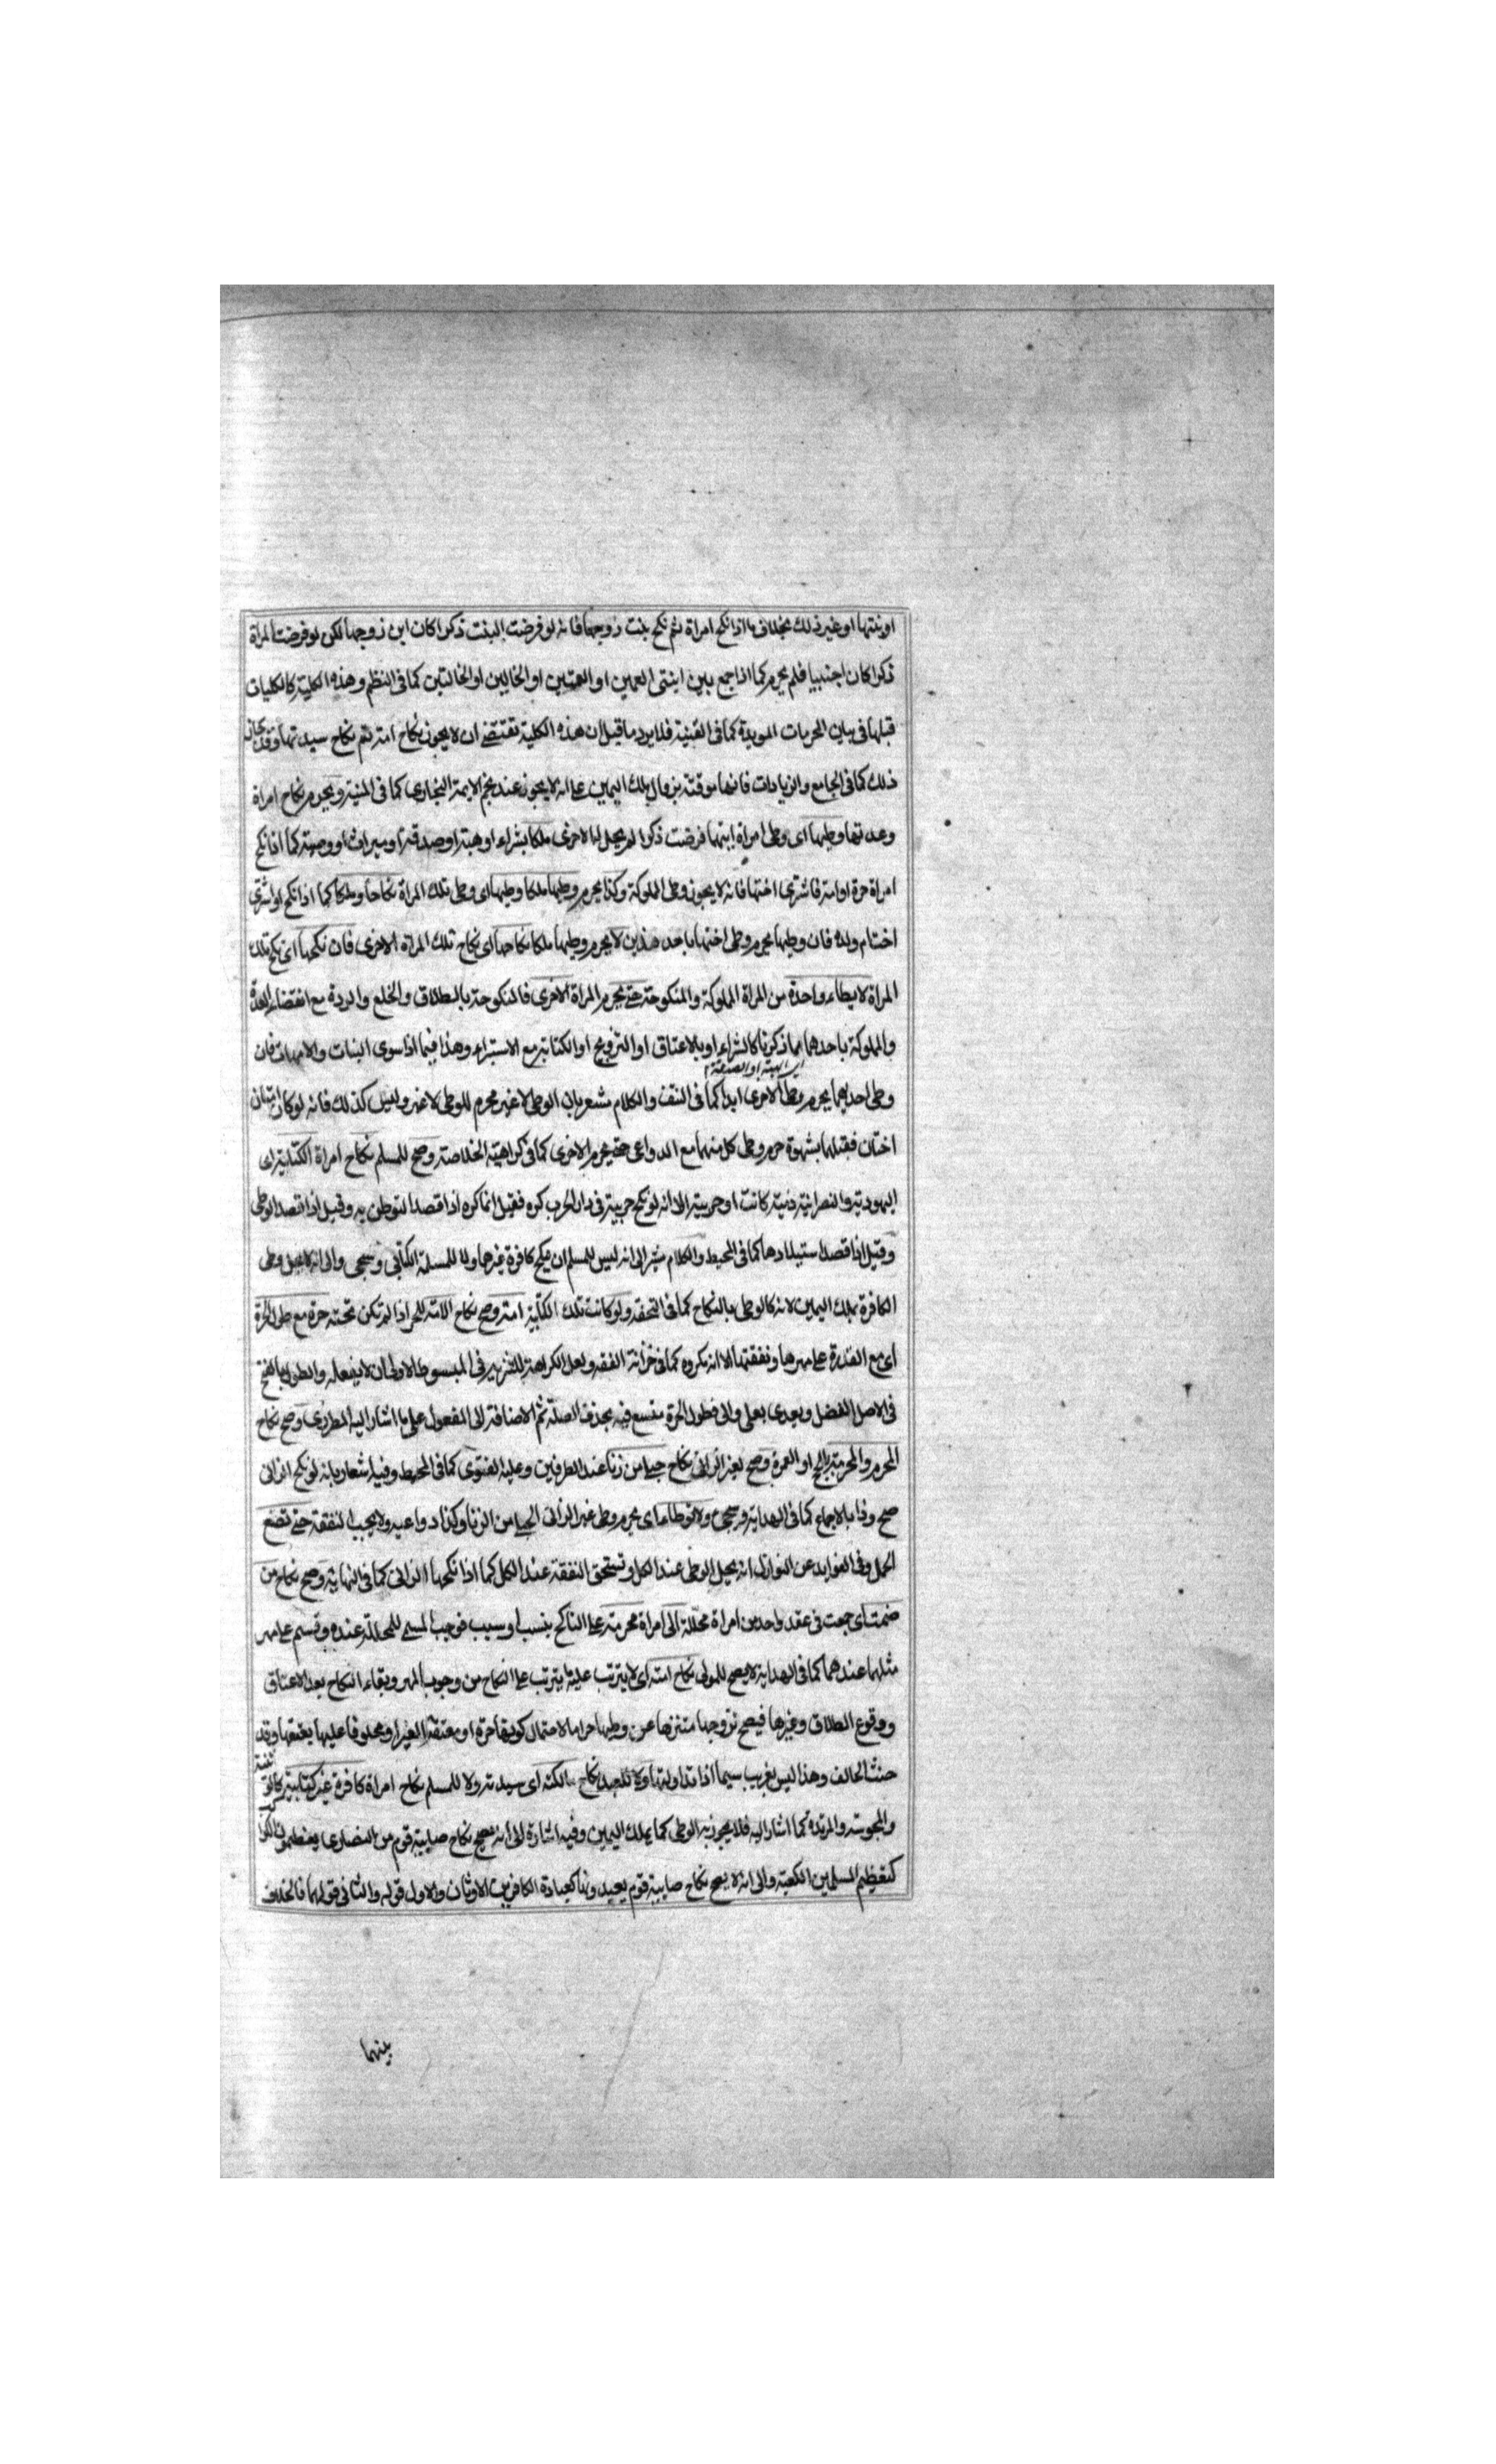 او بنتها او غير ذلك بخلاف ما اذا نكح امراة ثم نكح بنت زوجها فانه لو فرضت البنت ذكرا كان ابن زوجها لكن لو فرضت المراة
ذكرا كان اجنبيا فلم يحرم كما اذا جمع بين ابنتى العمين او العمتين او الخالين او الخالتين كما فى النظم وهذه الكلية كالكليات
قبلها فى بيان المحرمات المويدة كما فى القنية فلا يرد ما قيل ان هذه الكلية تقتضے ان لا يجوز نكاح امته ثم نكاح سيدتها وقد جاز
ذلك كما فى الجامع والزيادات فانها موقتة بزوال ملك اليمين على انه لا يجوز عند نجم الايمة البخارى كما فى المنية ويحرم نكاح امراة
وعدتها وطيها اى وطى امراة ايتها فرضت ذكرا لم يحل لها الاخرى ملكا بشراء او هبة او صدقة او ميراث او وصية كما اذا نكح
امراة حرة او امة فاشترى اختها فانه لا يجوز وطى المملوكة وكذا يحرم وطيها ملكا وطيها اى وطى تلك المراة نكاحا وملكا كما اذا نكح او اشترى
اخت ام ولده فان وطيها يحرم وطى اختها باحد هذين لا يحرم وطيها ملكا نكاحها اى نكاح تلك المراة الاخرى فان نكحها اى نكح تلك
المراة لا يطاء واحدة من المراة المملوكة والمنكوحة حتے يحرم المراة الاخرى فالمنكوحة بالطلاق والخلع والردة مع انقضاء العدة
والمملوكة باحدهما بما ذكرنا كالشراء او بالاعتاق او التزويج او الكتابة مع الاستبراء وهذا فيما اذا سوى البنات والامهات فان
اى الهبة او الصدقة
وطى احديهما يحرم وطأ الاخرى ابدا كما فى النتف والكلام مشعر بان الوطى لا غير محرم للوطى لا غير وليس كذلك فانه لو كان امتان
اختان فقبلهما بشهوة حرم وطى كل منهما مع الدواعى حتے يحرم الاخرى كما فى كراهية الخلاصة وصح للمسلم نكاح امراة الكتابية اى
اليهودية والنصرانية ذمية كانت او حربية الا انه لو نكح حربية فى دار الحرب كره فقيل انما كره اذا قصد التوطن به وقيل اذا قصد الوطى
وقيل اذا قصد استيلادها كما فى المحيط والكلام مشير الى انه ليس للمسلم ان ينكح كافرة غيرها ولا للمسلمة الكتابى وسيجى والى انه لا يحل وطى
الكافرة بملك اليمين لانه كالوطى بالنكاح كما فى التحفة ولو كانت تلك الكتابية امة وصح نكاح الامة للحر اذا لم تكن تحته حرة مع طول الحرة
اى مع القدرة على مهرها ونفقتها الا انه مكروه كما فى خزانة الفقه ولعل الكراهة للتنزيه فى المبسوط الاولى ان لا يفعله والطول بالفتح
فى الاصل الفضل ويعدى بعلى والى فطول الحرة متسع فيه بحذف الصلة ثم الاضافة الى المفعول على ما اشار اليه المطرزى وصح نكاح
المحرم والمحرمة بالحج او العمرة وصح لغير الزانى نكاح حبلى من زنا عند الطرفين وعليه الفتوى كما فى المحيط وفيه اشعار بانه لو نكح الزانى
صح وذا بالاجماع كما فى الهداية وسيجى ولا توطا اى يحرم وطى غير الزانى الحبلى من الزنا وكذا دواعيه ولا يجب النفقة حتے تضع
الحمل وفى الفوايد عن النوازل انه يحل الوطى عند الكل وتستحق النفقة عند الكل كما اذا نكحها الزانى كما فى النهاية وصح نكاح من
ضمت اى جمعت فى عقد واحد من امراة محللة الى امراة محرمة على الناكح بنسب او سبب فوجب المسمے للمحللة عنده وقسم على مهر
مثلهما عندهما كما فى الهداية لا يصح للمولى نكاح امته اى لا يترتب عليه ما يترتب على النكاح من وجوب المهر وبقاء النكاح بعد الاعتاق
ووقوع الطلاق وغيرها فيصح تزوجها متنزها عن وطيها حراما لاحتمال كونها حرة او معتقة الغير او محلوفا عليها بعتقها وقد
حنث الحالف وهذا ليس بغريب سيما اذا تداولتها ولا للعبد نكاح مالكته اى سيدته ولا للمسلم نكاح امراة كافرة غير كتابية كالوثنية
والمجوسية والمرتدة كما اشار اليه فلا يجوز به الوطى كما بملك اليمين وفيه اشارة الى انه يصح نكاح صابية قوم من النصارى يعظمون الكواكب
كتعظيم المسلمين الكعبة والى انه لا يصح نكاح صابية قوم يعبدونها كعبادة الكافرين الاوثان والاول قوله والثانى قولهما فالخلاف
بينهما